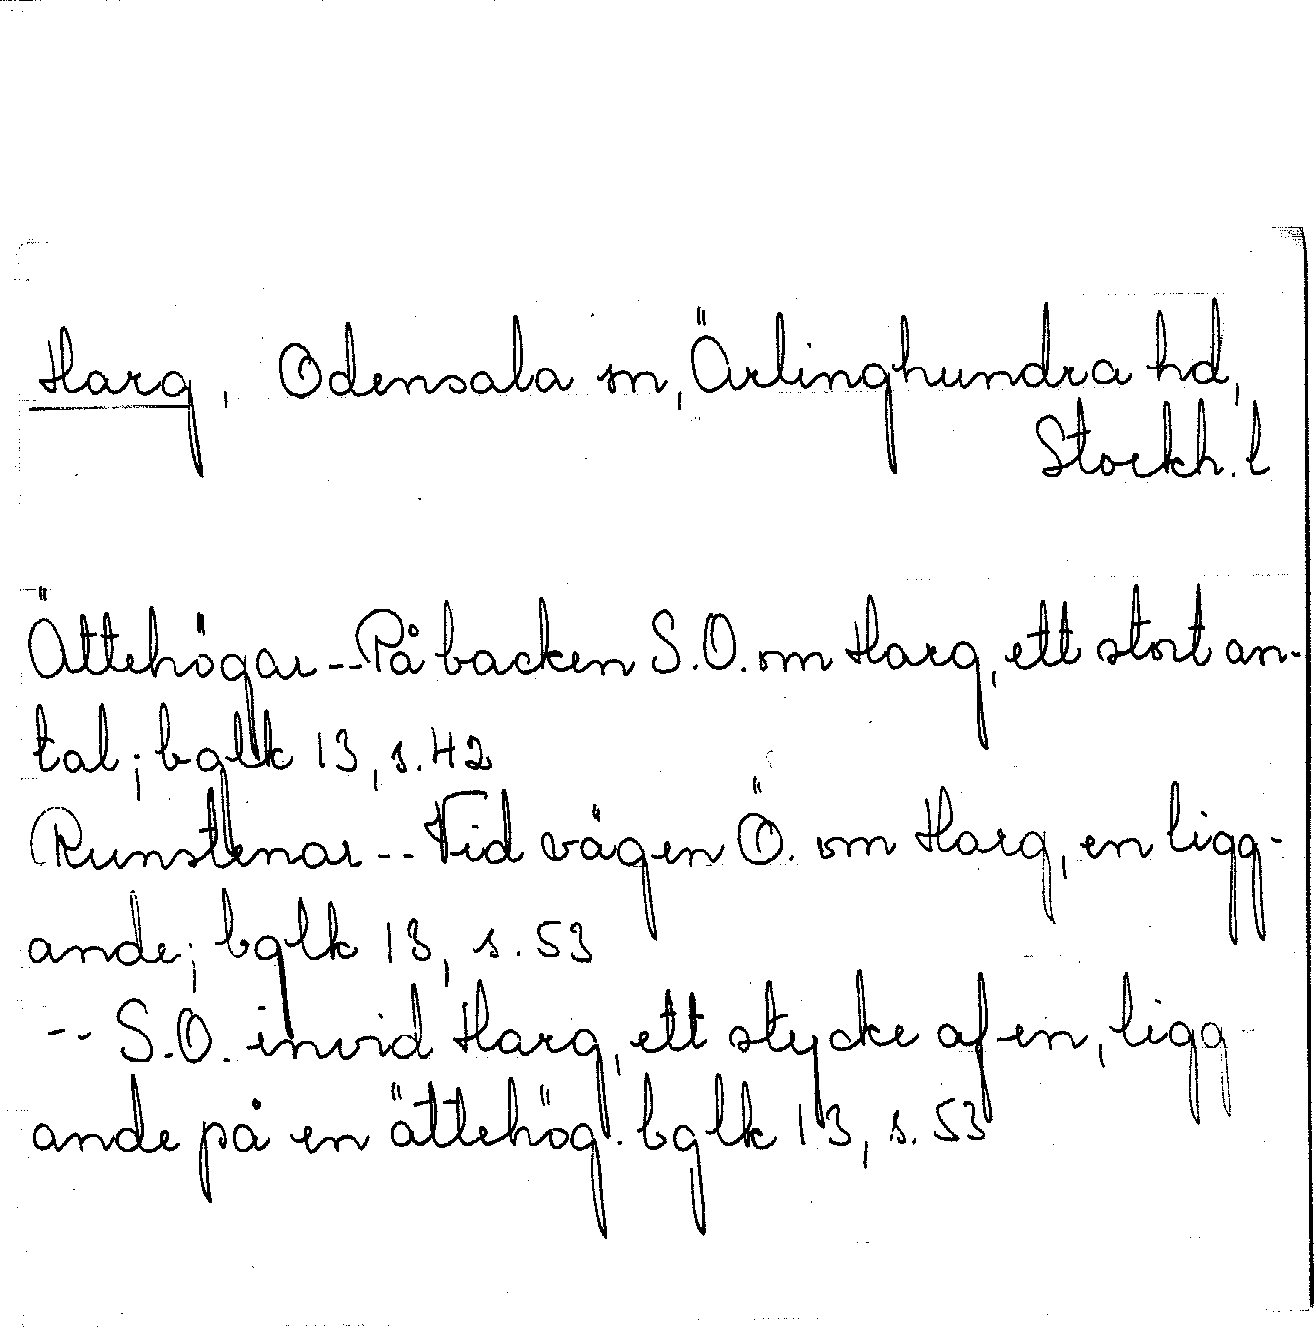 Harg, Odensala sn, Ärlinghundra hd,
Stockh. l
Ättehögar -- På backen S.O. om Harg, ett stort an-
tal; bglk 13, s. 42
Runstenar -- Vid vägen Ö. om Harg, en ligg-
ande; bglk 13, s. 53
-- S.O. invid Harg, ett stycke af en, ligg-
ande på en ättehög. bglk 13, s. 53